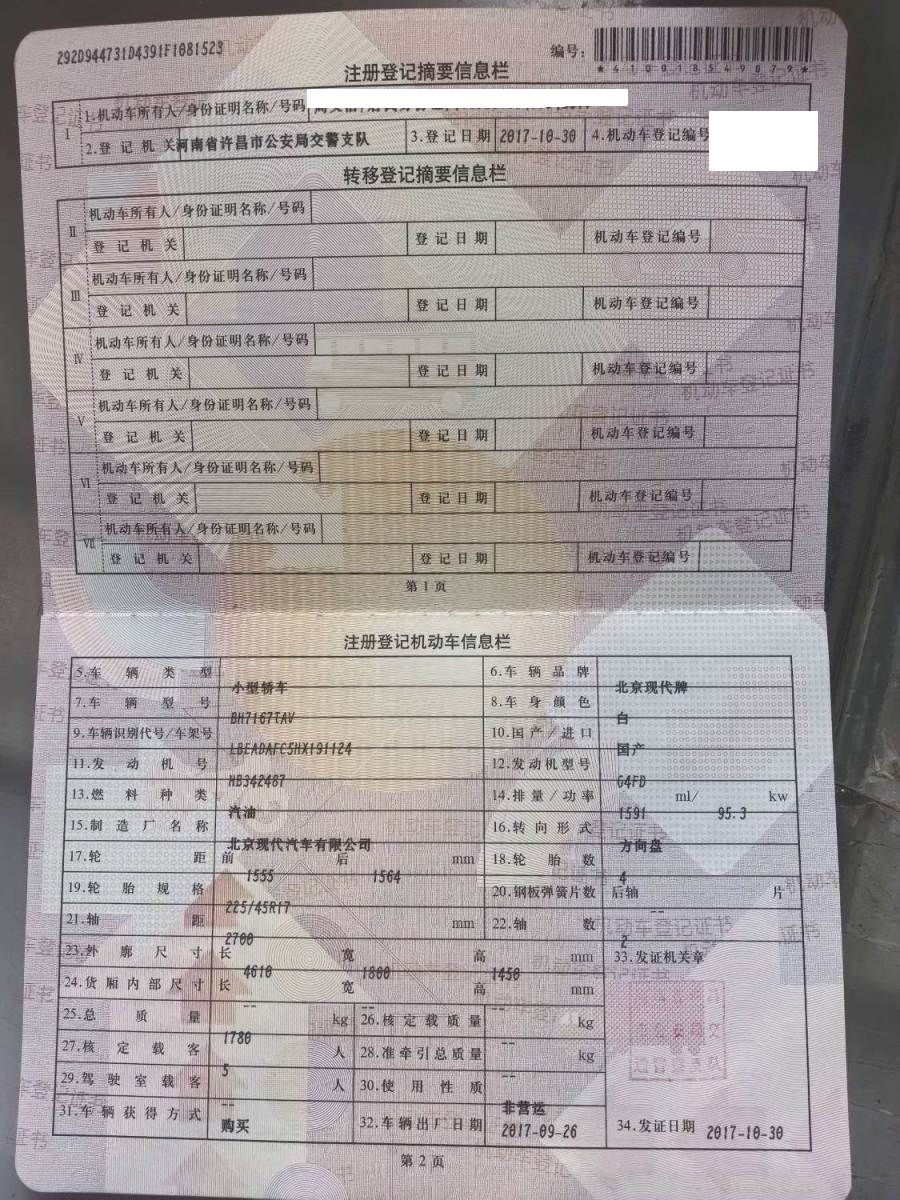 292D944731D4391F1081523
编号:
*410018549079*
注册登记摘要信息栏
I 1.机动车所有人/身份证明名称/号码
2.登记机关 河南省许昌市公安局交警支队 3.登记日期 2017-10-30 4.机动车登记编号
转移登记摘要信息栏
II 机动车所有人/身份证明名称/号码
登记机关 登记日期 机动车登记编号
III 机动车所有人/身份证明名称/号码
登记机关 登记日期 机动车登记编号
IV 机动车所有人/身份证明名称/号码
登记机关 登记日期 机动车登记编号
V 机动车所有人/身份证明名称/号码
登记机关 登记日期 机动车登记编号
VI 机动车所有人/身份证明名称/号码
登记机关 登记日期 机动车登记编号
VII 机动车所有人/身份证明名称/号码
登记机关 登记日期 机动车登记编号
第1页
注册登记机动车信息栏
5.车辆类型 小型轿车 6.车辆品牌 北京现代牌
7.车辆型号 BH7167TAV 8.车身颜色 白
9.车辆识别代号/车架号 LBEADAFC5HX191124 10.国产/进口 国产
11.发动机号 HB342487 12.发动机型号 G4FD
13.燃料种类 汽油 14.排量/功率 1591 ml/ 95.3 kw
15.制造厂名称 北京现代汽车有限公司 16.转向形式 方向盘
17.轮距 前 1555 后 1564 mm 18.轮胎数 4
19.轮胎规格 225/45R17 20.钢板弹簧片数 后轴 -- 片
21.轴距 2700 mm 22.轴数 2
23.外廓尺寸 长 4610 宽 1800 高 1450 mm 33.发证机关章
24.货厢内部尺寸 长 -- 宽 -- 高 -- mm
25.总质量 1780 kg 26.核定载质量 -- kg
27.核定载客 5 人 28.准牵引总质量 -- kg
29.驾驶室载客 -- 人 30.使用性质 非营运
31.车辆获得方式 购买 32.车辆出厂日期 2017-09-26 34.发证日期 2017-10-30
第2页